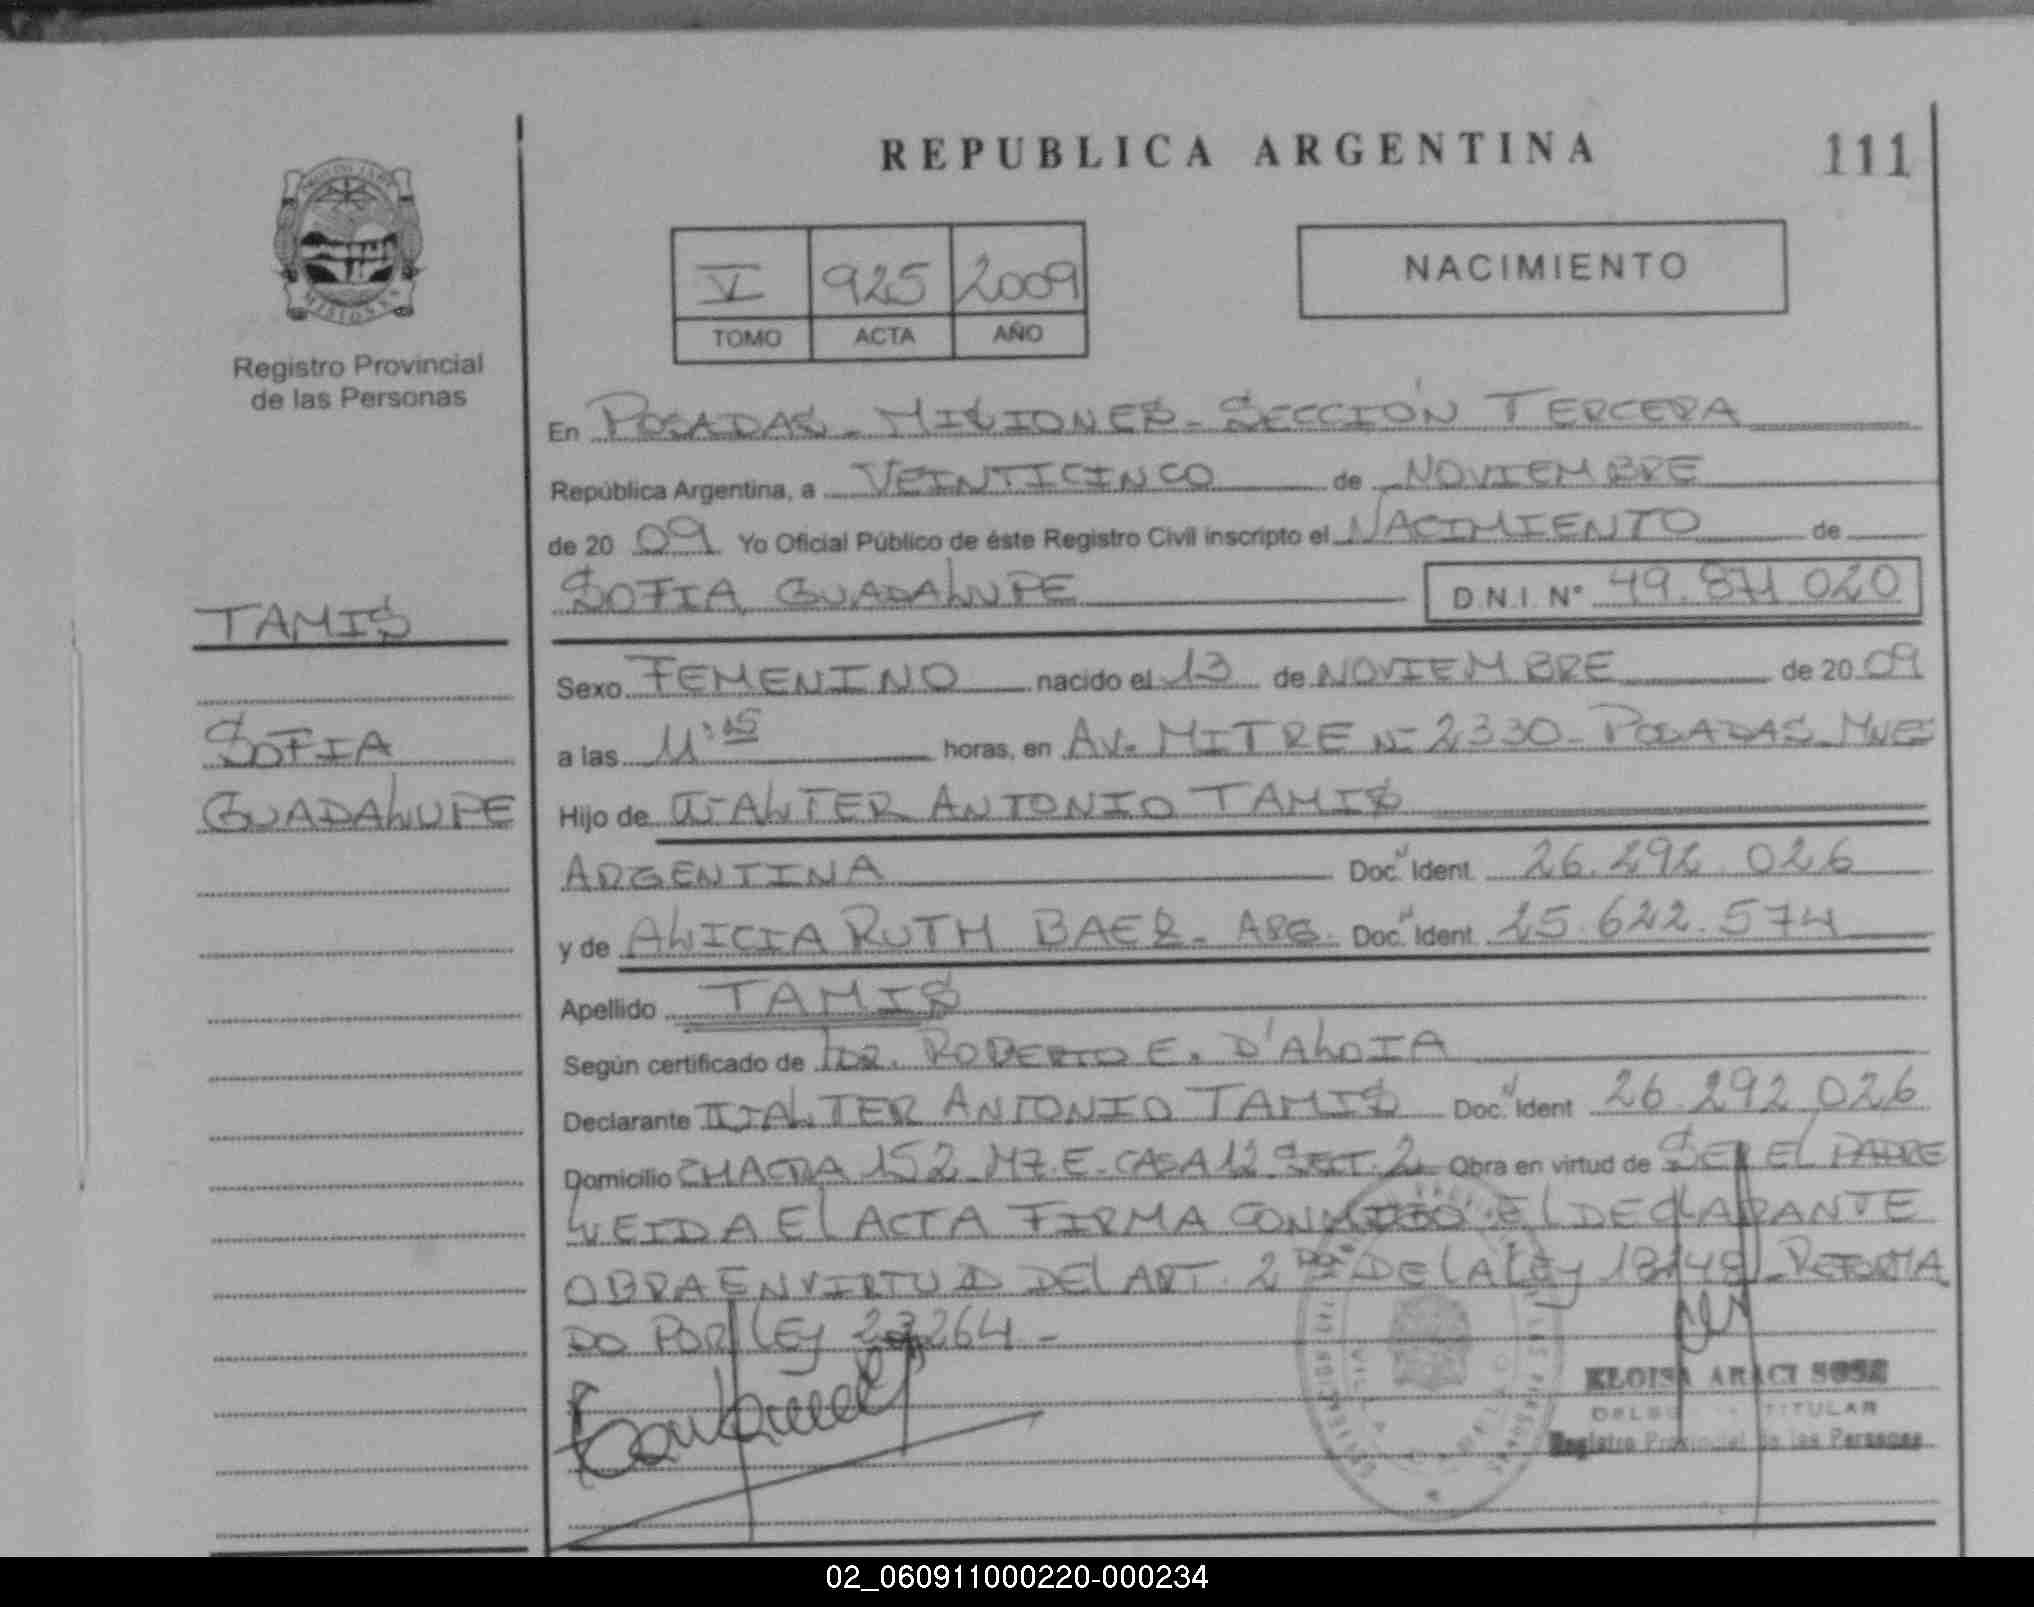 REPUBLICA ARGENTINA
111
MISIONES
Registro Provincial
de las Personas
V 925 2009
TOMO ACTA AÑO
NACIMIENTO
En POSADAS - MISIONES - SECCIÓN TERCERA
República Argentina, a VEINTICINCO de NOVIEMBRE
de 20 09 Yo Oficial Público de éste Registro Civil inscripto el NACIMIENTO de
SOFIA GUADALUPE D.N.I. N° 49.871.020
TAMIS
SOFIA
GUADALUPE
Sexo FEMENINO nacido el 13 de NOVIEMBRE de 20 09
a las 11:15 horas, en AV. MITRE N° 2330 - POSADAS MNES
Hijo de WALTER ANTONIO TAMIS
ARGENTINA Doc. Ident. 26.292.026
y de ALICIA RUTH BAEZ - ARG. Doc. Ident. 25.622.574
Apellido TAMIS
Según certificado de DR. ROBERTO E. D'ALOIA
Declarante WALTER ANTONIO TAMIS Doc. Ident 26.292.026
Domicilio CHACRA 152 MZ. E. CASA 12 SECT. 2 Obra en virtud de SER EL PADRE
LEIDA EL ACTA FIRMA CONMIGO EL DECLARANTE
OBRA EN VIRTUD DEL ART. 2 DE LA LEy REFORMA
DO POR LEy 23264 -
ELOISA ARACI SOSA
TITULAR
Registro Provincial de las Personas
02_060911000220-000234